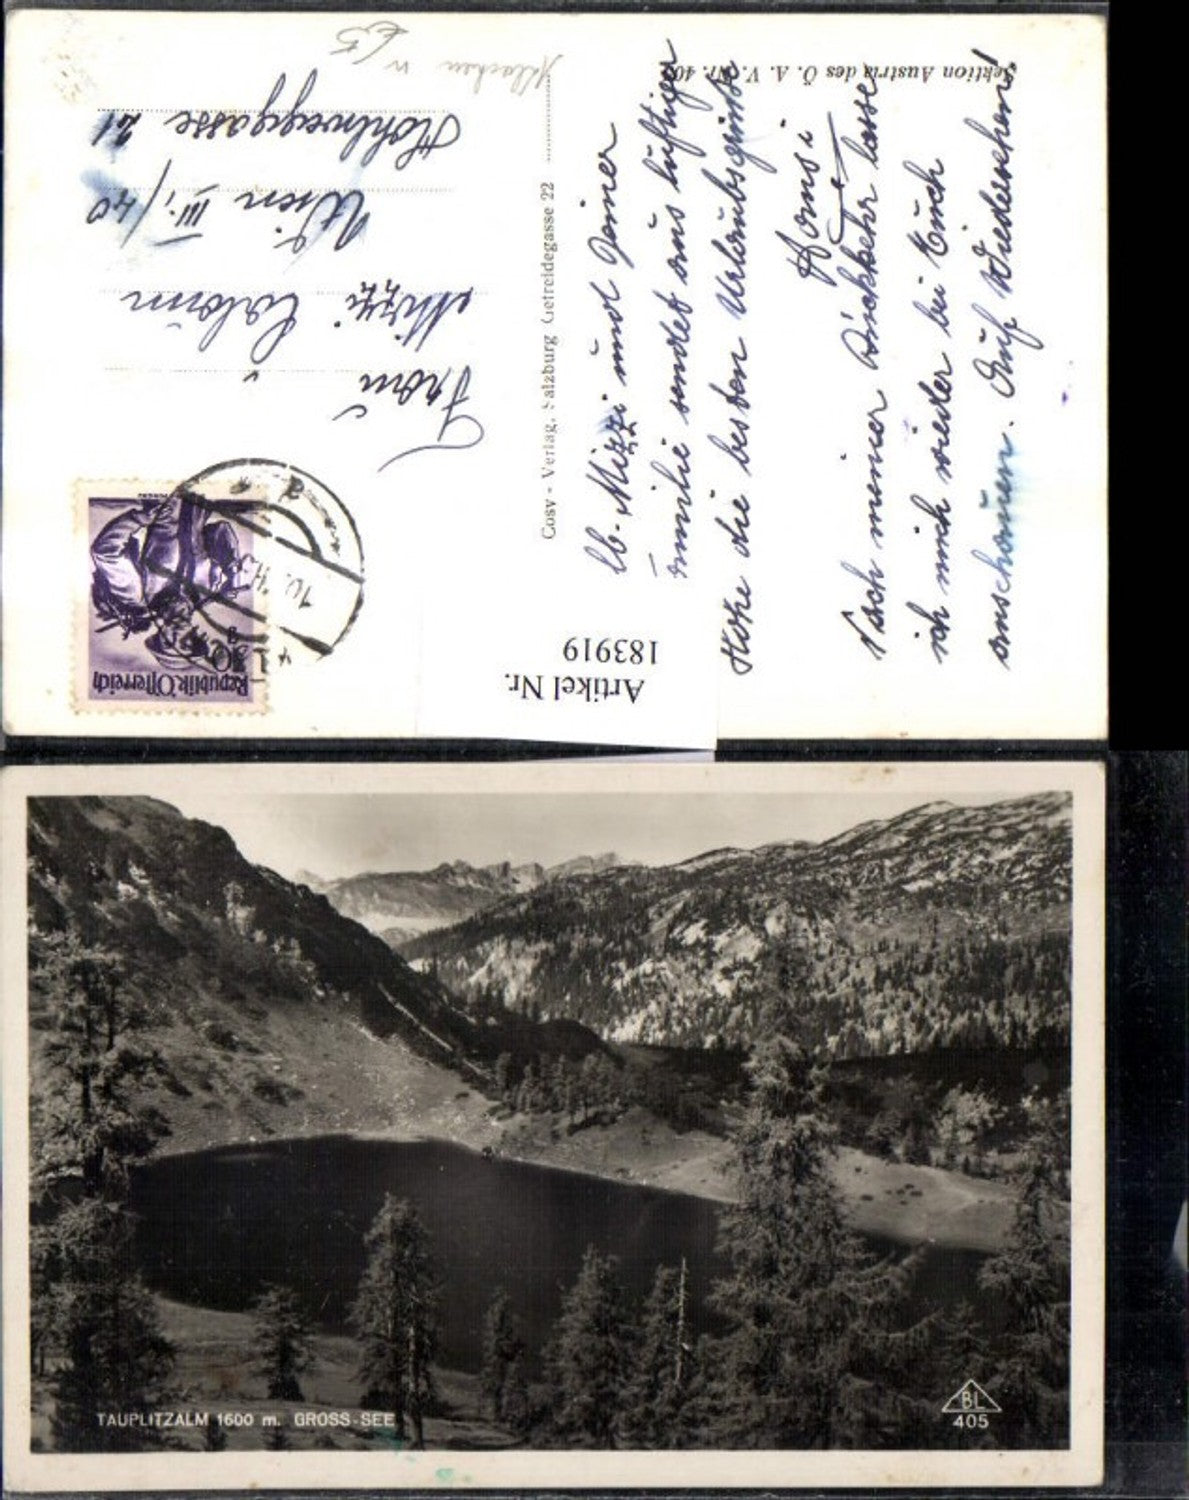 Sektion Austria des Ö. A. V. Nr. 405
lb. Mizzi und Deiner
Familie sendet aus luftiger
Höhe die besten Urlaubsgrüße
Hansi
Nach meiner Rückkehr lasse
ich mich wieder bei Euch
anschauen. Auf Wiedersehen!
Cosv - Verlag, Salzburg Getreidegasse 22
Republik Österreich
Frau
Mizzi
Wien III./40
Hohlweggasse 21
Artikel Nr.
183919
TAUPLITZALM 1600 m. GROSS-SEE
BL
405